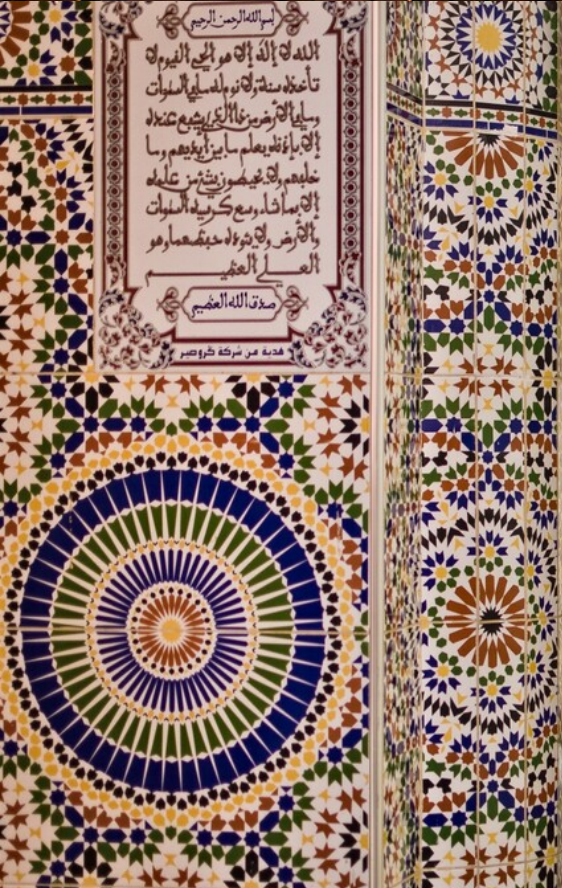 بسم الله الرحمن الرحيم
الله لا إله إلا هو الحي القيوم لا
تأخذه سنة ولا نوم له ما في السموات
وما في الأرض من ذا الذي يشفع عنده
إلا بإذنه يعلم ما بين أيديهم وما
خلفهم ولا يحيطون بشيء من علمه
إلا بما شاء وسع كرسيه السموات
والأرض ولا يئوده حفظهما وهو
العلي العظيم
صدق الله العظيم
هدية من شركة گروصير